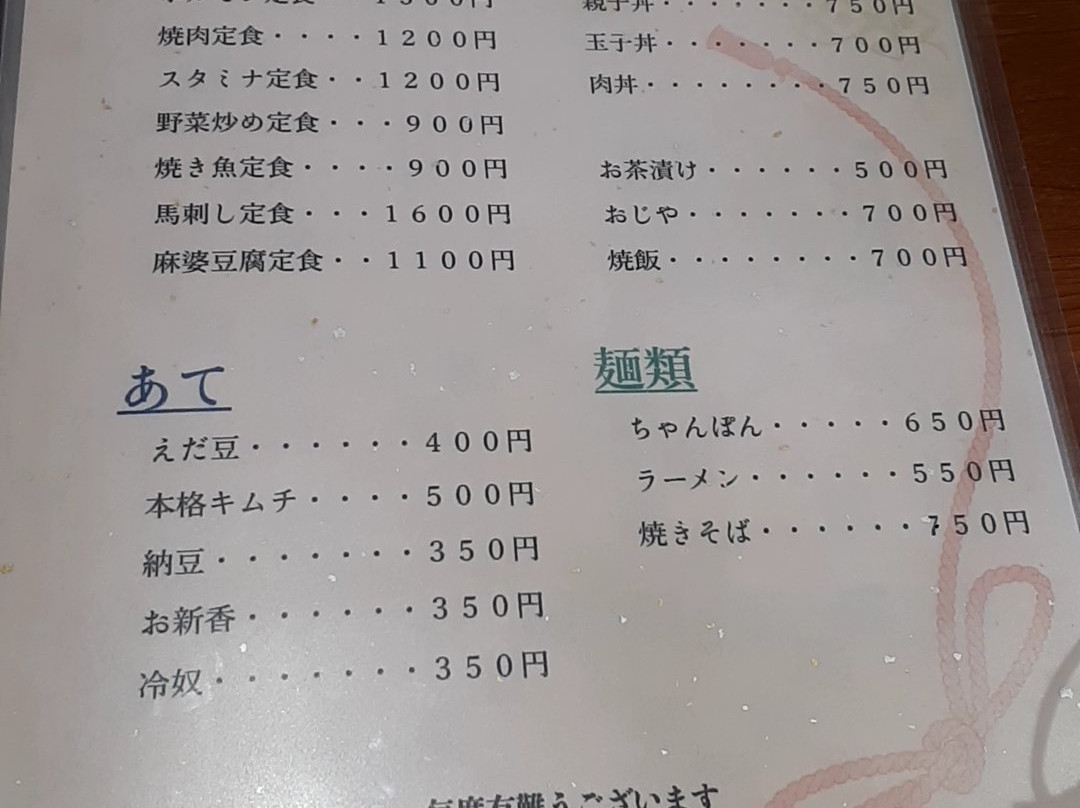 定食・・・・1300円
焼肉定食・・・・1200円
スタミナ定食・・1200円
野菜炒め定食・・・900円
焼き魚定食・・・・900円
馬刺し定食・・・1600円
麻婆豆腐定食・・1100円
親子丼・・・・・・・750円
玉子丼・・・・・・・700円
肉丼・・・・・・・・750円
お茶漬け・・・・・・500円
おじや・・・・・・・700円
焼飯・・・・・・・・700円
あて
えだ豆・・・・・・400円
本格キムチ・・・・500円
納豆・・・・・・・350円
お新香・・・・・・350円
冷奴・・・・・・・350円
麺類
ちゃんぽん・・・・・650円
ラーメン・・・・・・550円
焼きそば・・・・・・750円
毎度有難うございます